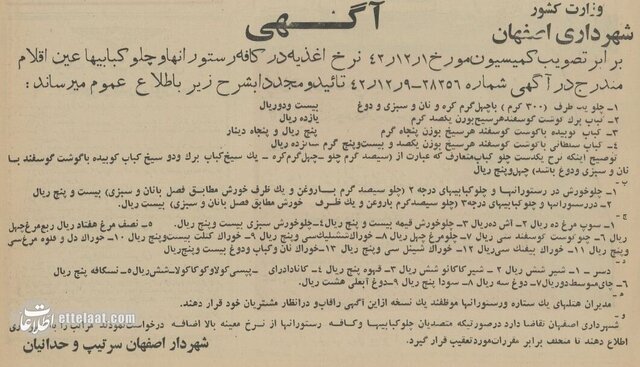 وزارت کشور
شهرداری اصفهان
آگهی
برابر تصویب کمیسیون مورخ ۱ر۱۲ر۴۲ نرخ اغذیه در کافه رستورانها و چلوکبابیها عین اقلام
مندرج در آگهی شماره ۲۸۲۵۶-۹ر۱۲ر۴۲ تائید و مجددا بشرح زیر باطلاع عموم میرساند:
۱- چلو یک ظرف (۳۰۰ گرم) با چهل گرم کره و نان و سبزی و دوغ بیست و دو ریال
۲- کباب برگ گوشت گوسفند هر سیخ بوزن یکصد گرم یازده ریال
۳- کباب کوبیده با گوشت گوسفند هر سیخ بوزن پنجاه گرم پنج ریال و پنجاه دینار
۴- کباب سلطانی با گوشت گوسفند هر سیخ بوزن یکصد و بیست و پنج گرم شانزده ریال
توضیح اینکه نرخ یکدست چلو کباب متعارف که عبارت از (سیصد گرم چلو - چهل گرم کره - یک سیخ کباب برگ و دو سیخ کباب کوبیده با گوشت گوسفند با
نان و سبزی و دوغ باشد) چهل و پنج ریال
ب -
۱- چلو خورش در رستورانها و چلو کبابیهای درجه ۲ (چلو سیصد گرم با روغن و یک ظرف خورش مطابق فصل با نان و سبزی) بیست و پنج ریال
۲- در رستورانها و چلو کبابیهای درجه ۳ (چلو سیصد گرم با روغن و یک ظرف خورش مطابق فصل با نان و سبزی) بیست ریال.
ج -
۱- سوپ مرغ ده ریال ۲- آش ده ریال ۳- چلو خورش قیمه بیست و پنج ریال ۴- چلو خورش سبزی بیست و پنج ریال ۵- نصف مرغ هفتاد ریال ربع مرغ چهل
ریال ۶- چلو گوشت گوسفند سی ریال ۷- چلو مرغ چهل ریال ۸- خوراک ششلیک سی و پنج ریال ۹- خوراک کتلت بیست و پنج ریال ۱۰- خوراک دل و قلوه مرغ سی
و پنج ریال ۱۱- خوراک بیفتک سی ریال ۱۲- خوراک شنیسل سی و پنج ریال ۱۳- خوراک نان و کباب و دوغ بیست و پنج ریال
دسر - ۱- شیر شش ریال ۲- شیر کاکائو شش ریال ۳- قهوه پنج ریال ۴- کانادادرای - پپسی کولا و کوکاکولا شش ریال ۵- نسکافه پنج ریال
۶- چای متوسط دو ریال ۷- دوغ سه ریال ۸- سودا پنج ریال ۹- دوغ آبعلی هشت ریال.
مدیران هتلهای یک ستاره و رستورانها موظفند یک نسخه از این آگهی را قاب و در انظار مشتریان خود قرار دهند.
و -
شهرداری اصفهان تقاضا دارد در صورتیکه متصدیان چلوکبابیها و کافه رستورانها از نرخ معینه بالا اضافه درخواست نمودند مراتب را
دهند تا متخلف برابر مقررات مورد تعقیب قرار گیرد.
شهردار اصفهان سرتیپ وحدانیان
اطلاعات
ettelaat.com